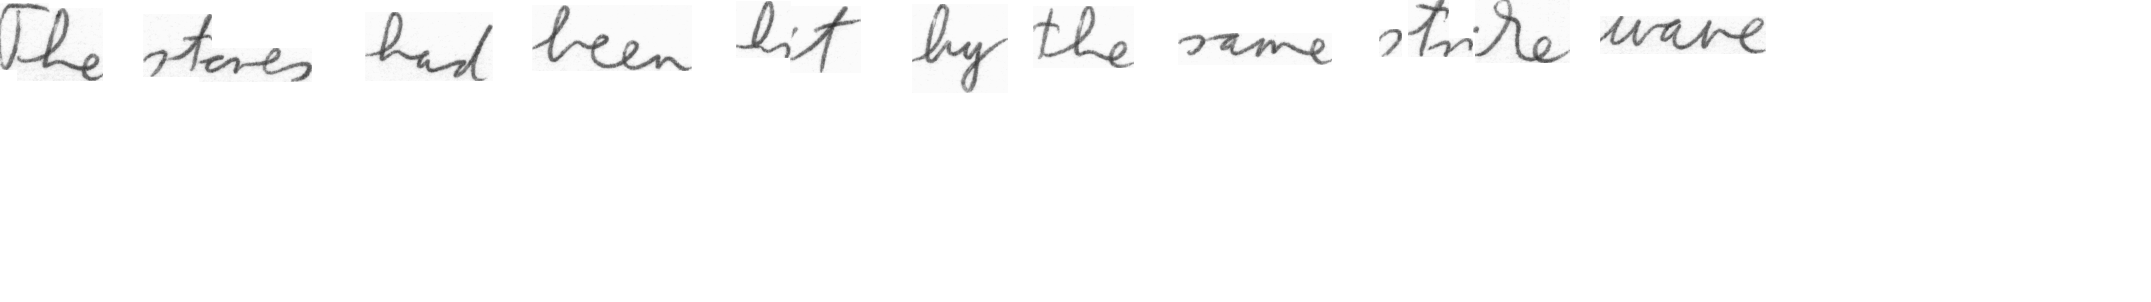 The stores had been hit by the same strike wave